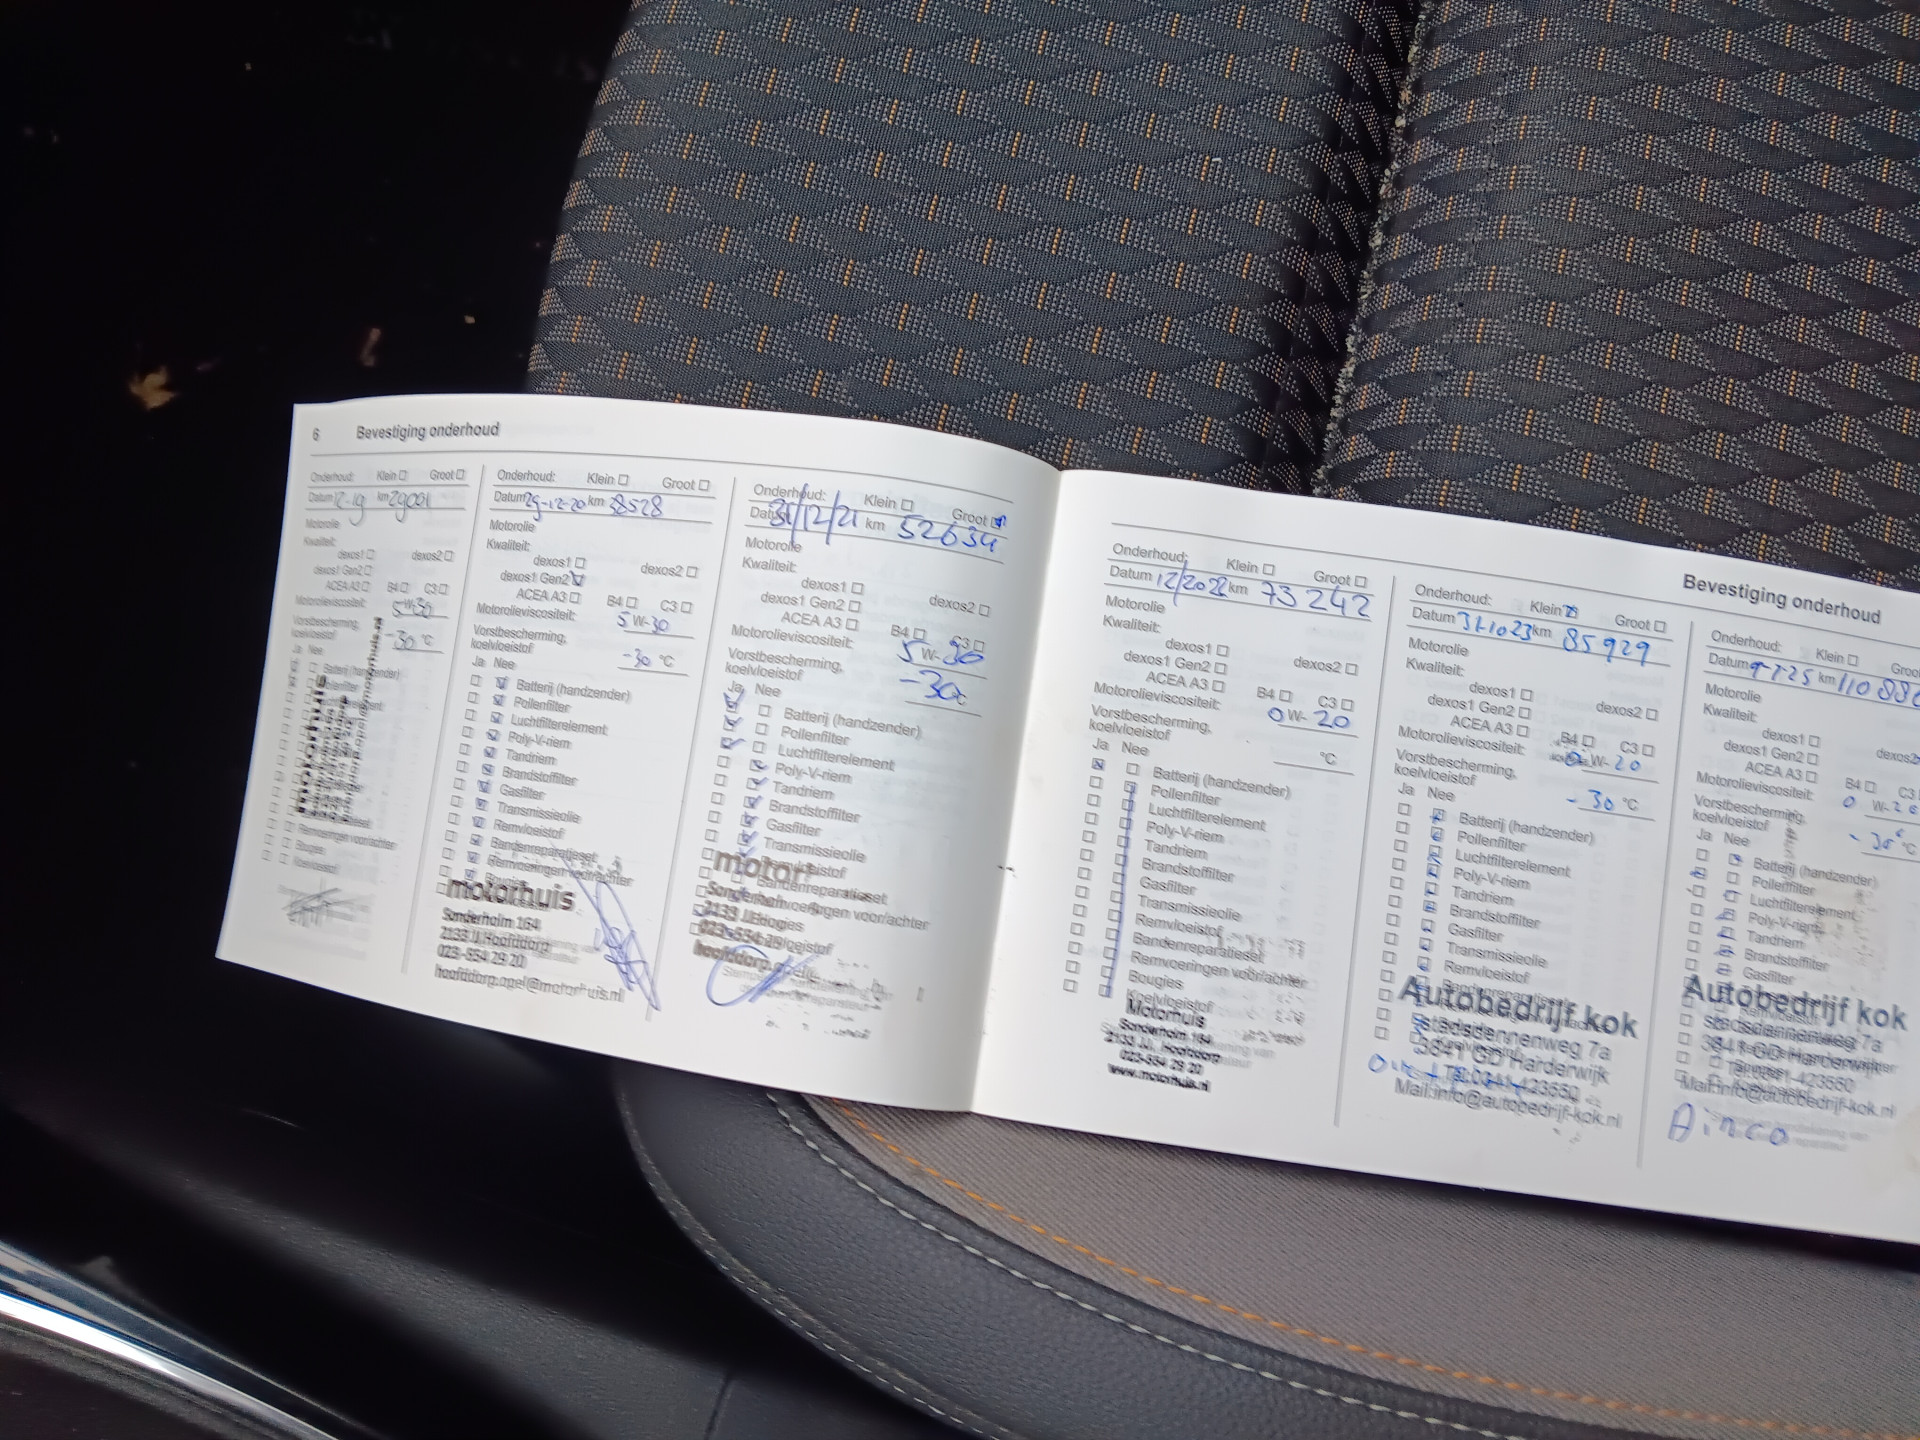 6 Bevestiging onderhoud
Onderhoud: Klein Groot
Datum 12-19 km 29001
Motorolie
Kwaliteit:
dexos1 dexos2
dexos1 Gen2
ACEA A3 B4 C3
Motorolieviscositeit:
5W-30
Vorstbescherming,
koelvloeistof -30 °C
Ja Nee
Batterij (handzender)
Remvoeringen voor/achter
Bougies
Koelvloeistof
Onderhoud: Klein Groot
Datum 29-12-20 km 38528
Motorolie
Kwaliteit:
dexos1 dexos2
dexos1 Gen2
ACEA A3 B4 C3
Motorolieviscositeit:
5 W-30
Vorstbescherming,
koelvloeistof -30 °C
Ja Nee
Batterij (handzender)
Pollenfilter
Luchtfilterelement
Poly-V-riem
Tandriem
Brandstoffilter
Gasfilter
Transmissieolie
Remvloeistof
Bandenreparatieset
Remvoeringen voor/achter
Bougies
motorhuis
Sonderholm 164
2133 JJ Hoofddorp
023-554 29 20
hoofddorp.opel@motorhuis.nl
Onderhoud: Klein Groot
Datum 31/12/21 km 52634
Motorolie
Kwaliteit:
dexos1 dexos2
dexos1 Gen2
ACEA A3 B4 C3
Motorolieviscositeit:
5 W-30
Vorstbescherming,
koelvloeistof -30 °C
Ja Nee
Batterij (handzender)
Pollenfilter
Luchtfilterelement
Poly-V-riem
Tandriem
Brandstoffilter
Gasfilter
Transmissieolie
Remvloeistof
Bandenreparatieset
Remvoeringen voor/achter
Bougies
Koelvloeistof
motor
Sonderholm
2133 JJ
023-554 29
hoofddorp.opel
Bevestiging onderhoud
Onderhoud: Klein Groot
Datum 12/2022 km 73242
Motorolie
Kwaliteit:
dexos1 dexos2
dexos1 Gen2
ACEA A3 B4 C3
Motorolieviscositeit:
0W-20
Vorstbescherming,
koelvloeistof °C
Ja Nee
Batterij (handzender)
Pollenfilter
Luchtfilterelement
Poly-V-riem
Tandriem
Brandstoffilter
Gasfilter
Transmissieolie
Remvloeistof
Bandenreparatieset
Remvoeringen voor/achter
Bougies
Koelvloeistof
Motorhuis
Sonderholm 164
2133 JJ, Hoofddorp
023-554 29 20
www.motorhuis.nl
Onderhoud: Klein Groot
Datum 31-10 23 km 85929
Motorolie
Kwaliteit:
dexos1 dexos2
dexos1 Gen2
ACEA A3 B4 C3
Motorolieviscositeit:
0 W-20
Vorstbescherming,
koelvloeistof -30 °C
Ja Nee
Batterij (handzender)
Pollenfilter
Luchtfilterelement
Poly-V-riem
Tandriem
Brandstoffilter
Gasfilter
Transmissieolie
Remvloeistof
Bandenreparatieset
Autobedrijf kok
Stadsdennenweg 7a
3841 GD Harderwijk
Tel:0341-423550
Mail:info@autobedrijf-kok.nl
Onderhoud: Klein Groot
Datum 9-7-25 km 110 88
Motorolie
Kwaliteit:
dexos1 dexos2
dexos1 Gen2
ACEA A3 B4 C3
Motorolieviscositeit:
0 W-20
Vorstbescherming,
koelvloeistof -30 °C
Ja Nee
Batterij (handzender)
Pollenfilter
Luchtfilterelement
Poly-V-riem
Tandriem
Brandstoffilter
Gasfilter
Autobedrijf kok
Stadsdennenweg 7a
3841 GD Harderwijk
Tel:0341-423550
Mail:info@autobedrijf-kok.nl
Ainco